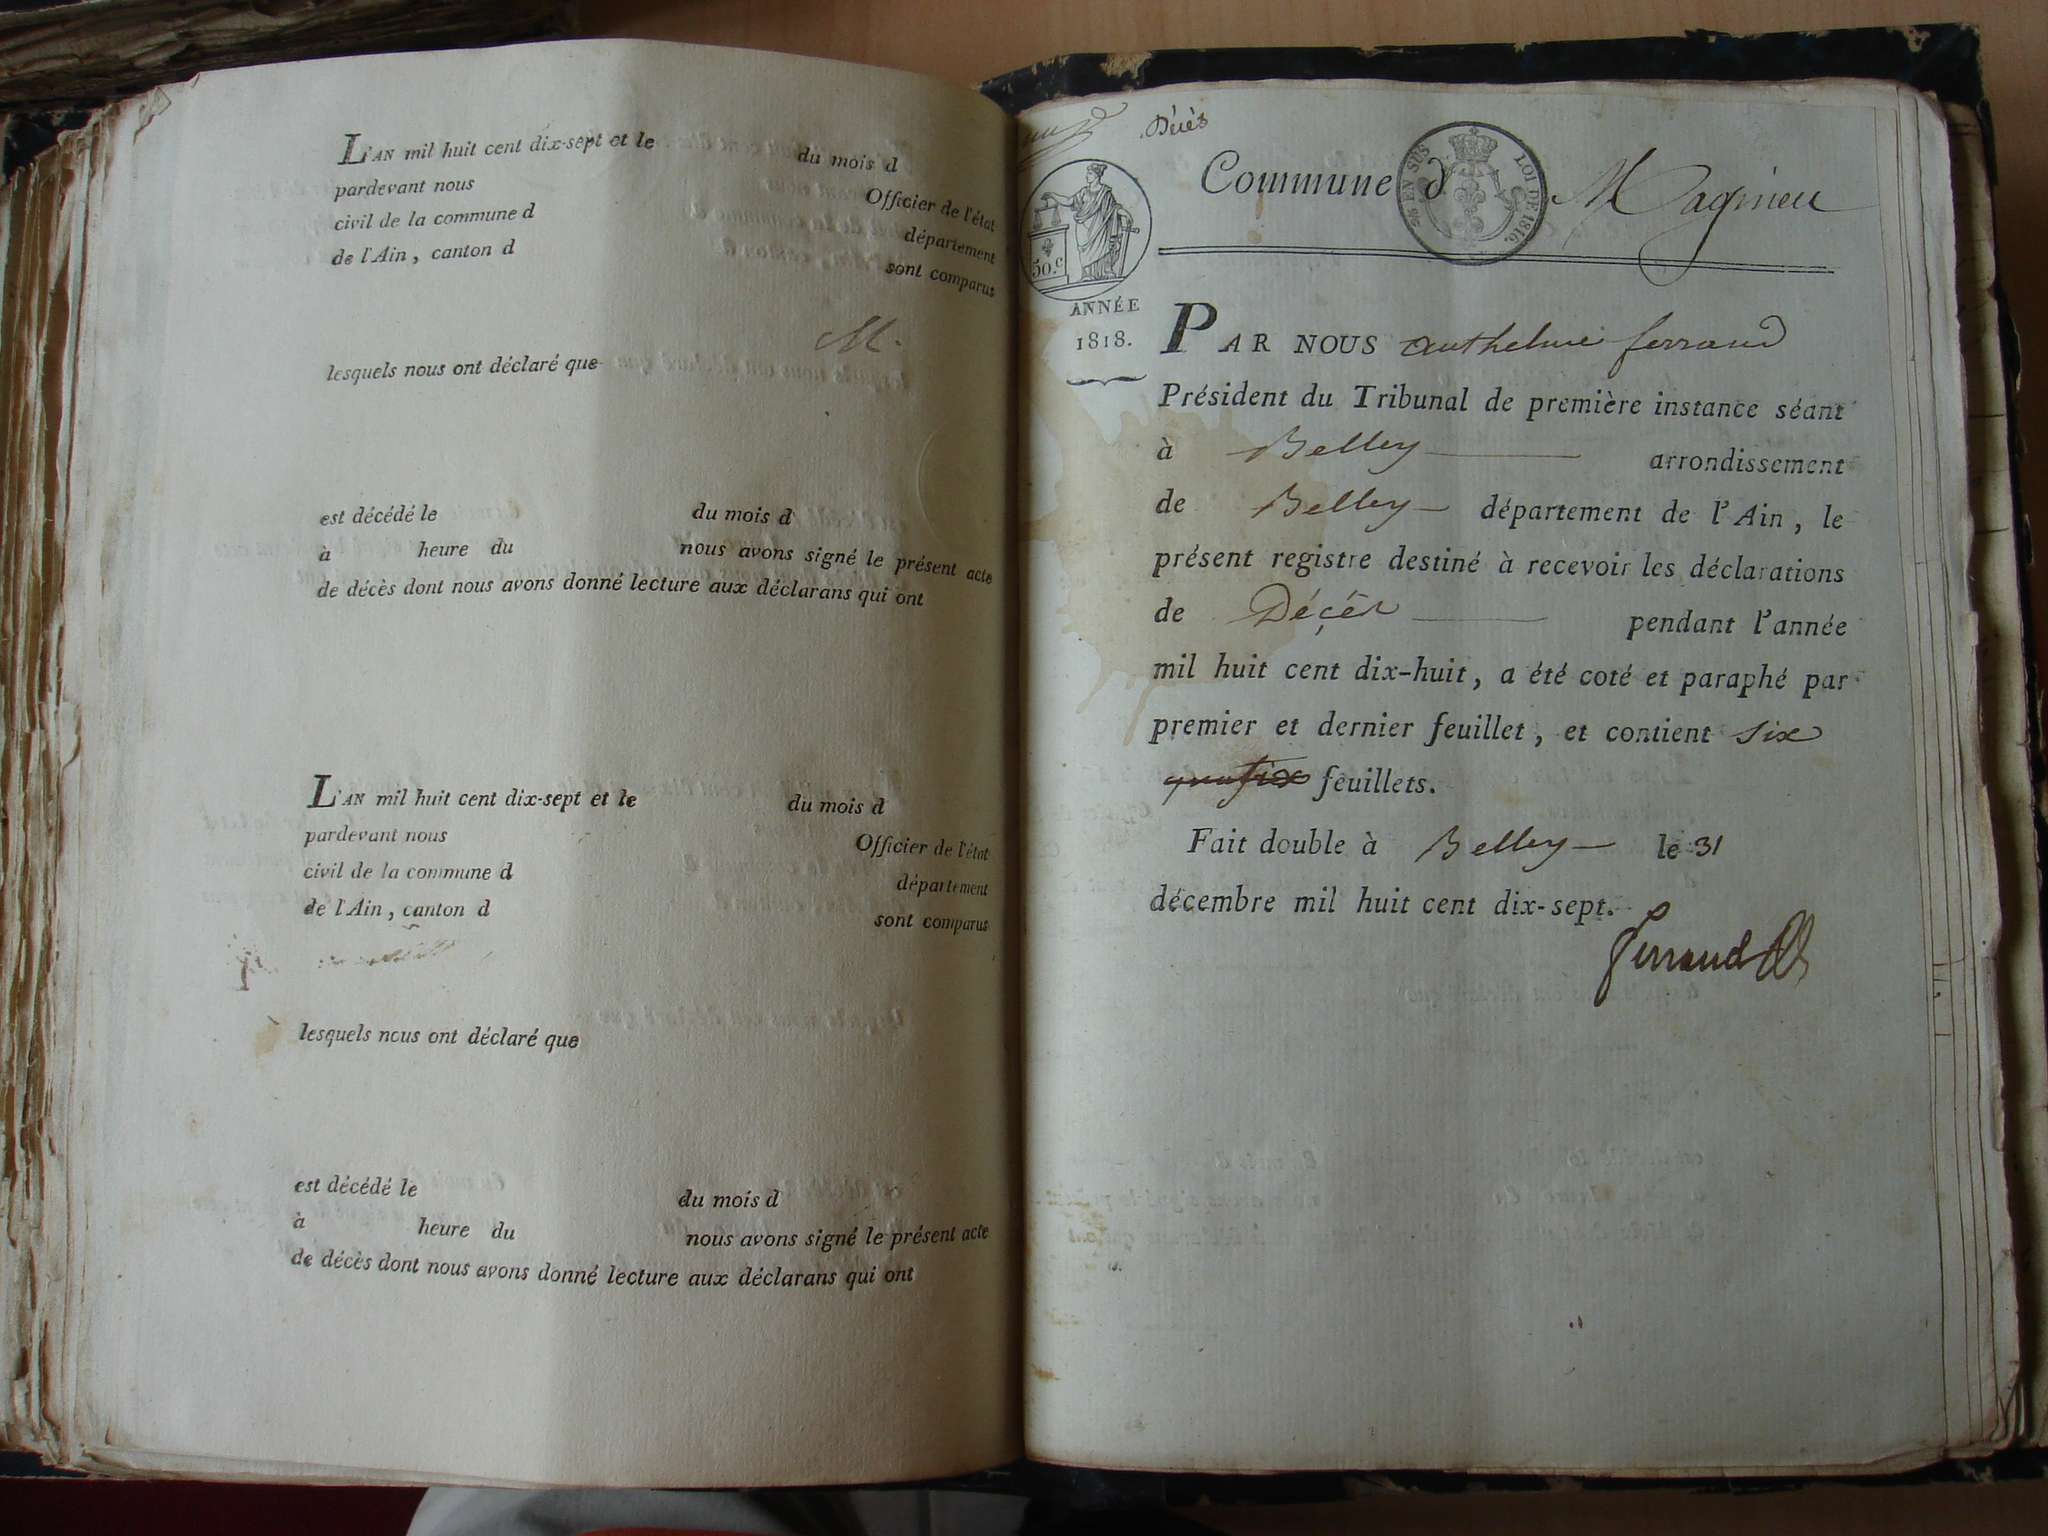 L'AN mil huit cent dix-sept et le du mois d
pardevant nous Officier de l'état
civil de la commune d département
de l'Ain, canton d sont comparus
M.
lesquels nous ont déclaré que
est décédé le du mois d
à heure du nous avons signé le présent acte
de décès dont nous avons donné lecture aux déclarans qui ont
L'AN mil huit cent dix-sept et le du mois d
pardevant nous Officier de l'état
civil de la commune d département
de l'Ain, canton d sont comparus
lesquels nous ont déclaré que
est décédé le du mois d
à heure du nous avons signé le présent acte
de décès dont nous avons donné lecture aux déclarans qui ont
Décès
Commune d Magnieu
EN SUS LOI DE 1816.
50.c
ANNÉE
1818.
PAR NOUS anthelme ferrand
Président du Tribunal de première instance séant
à Belley arrondissement
de Belley département de l'Ain, le
présent registre destiné à recevoir les déclarations
de Décès pendant l'année
mil huit cent dix-huit, a été coté et paraphé par
premier et dernier feuillet, et contient six
feuillets.
Fait double à Belley le 31
décembre mil huit cent dix-sept.
Ferrand